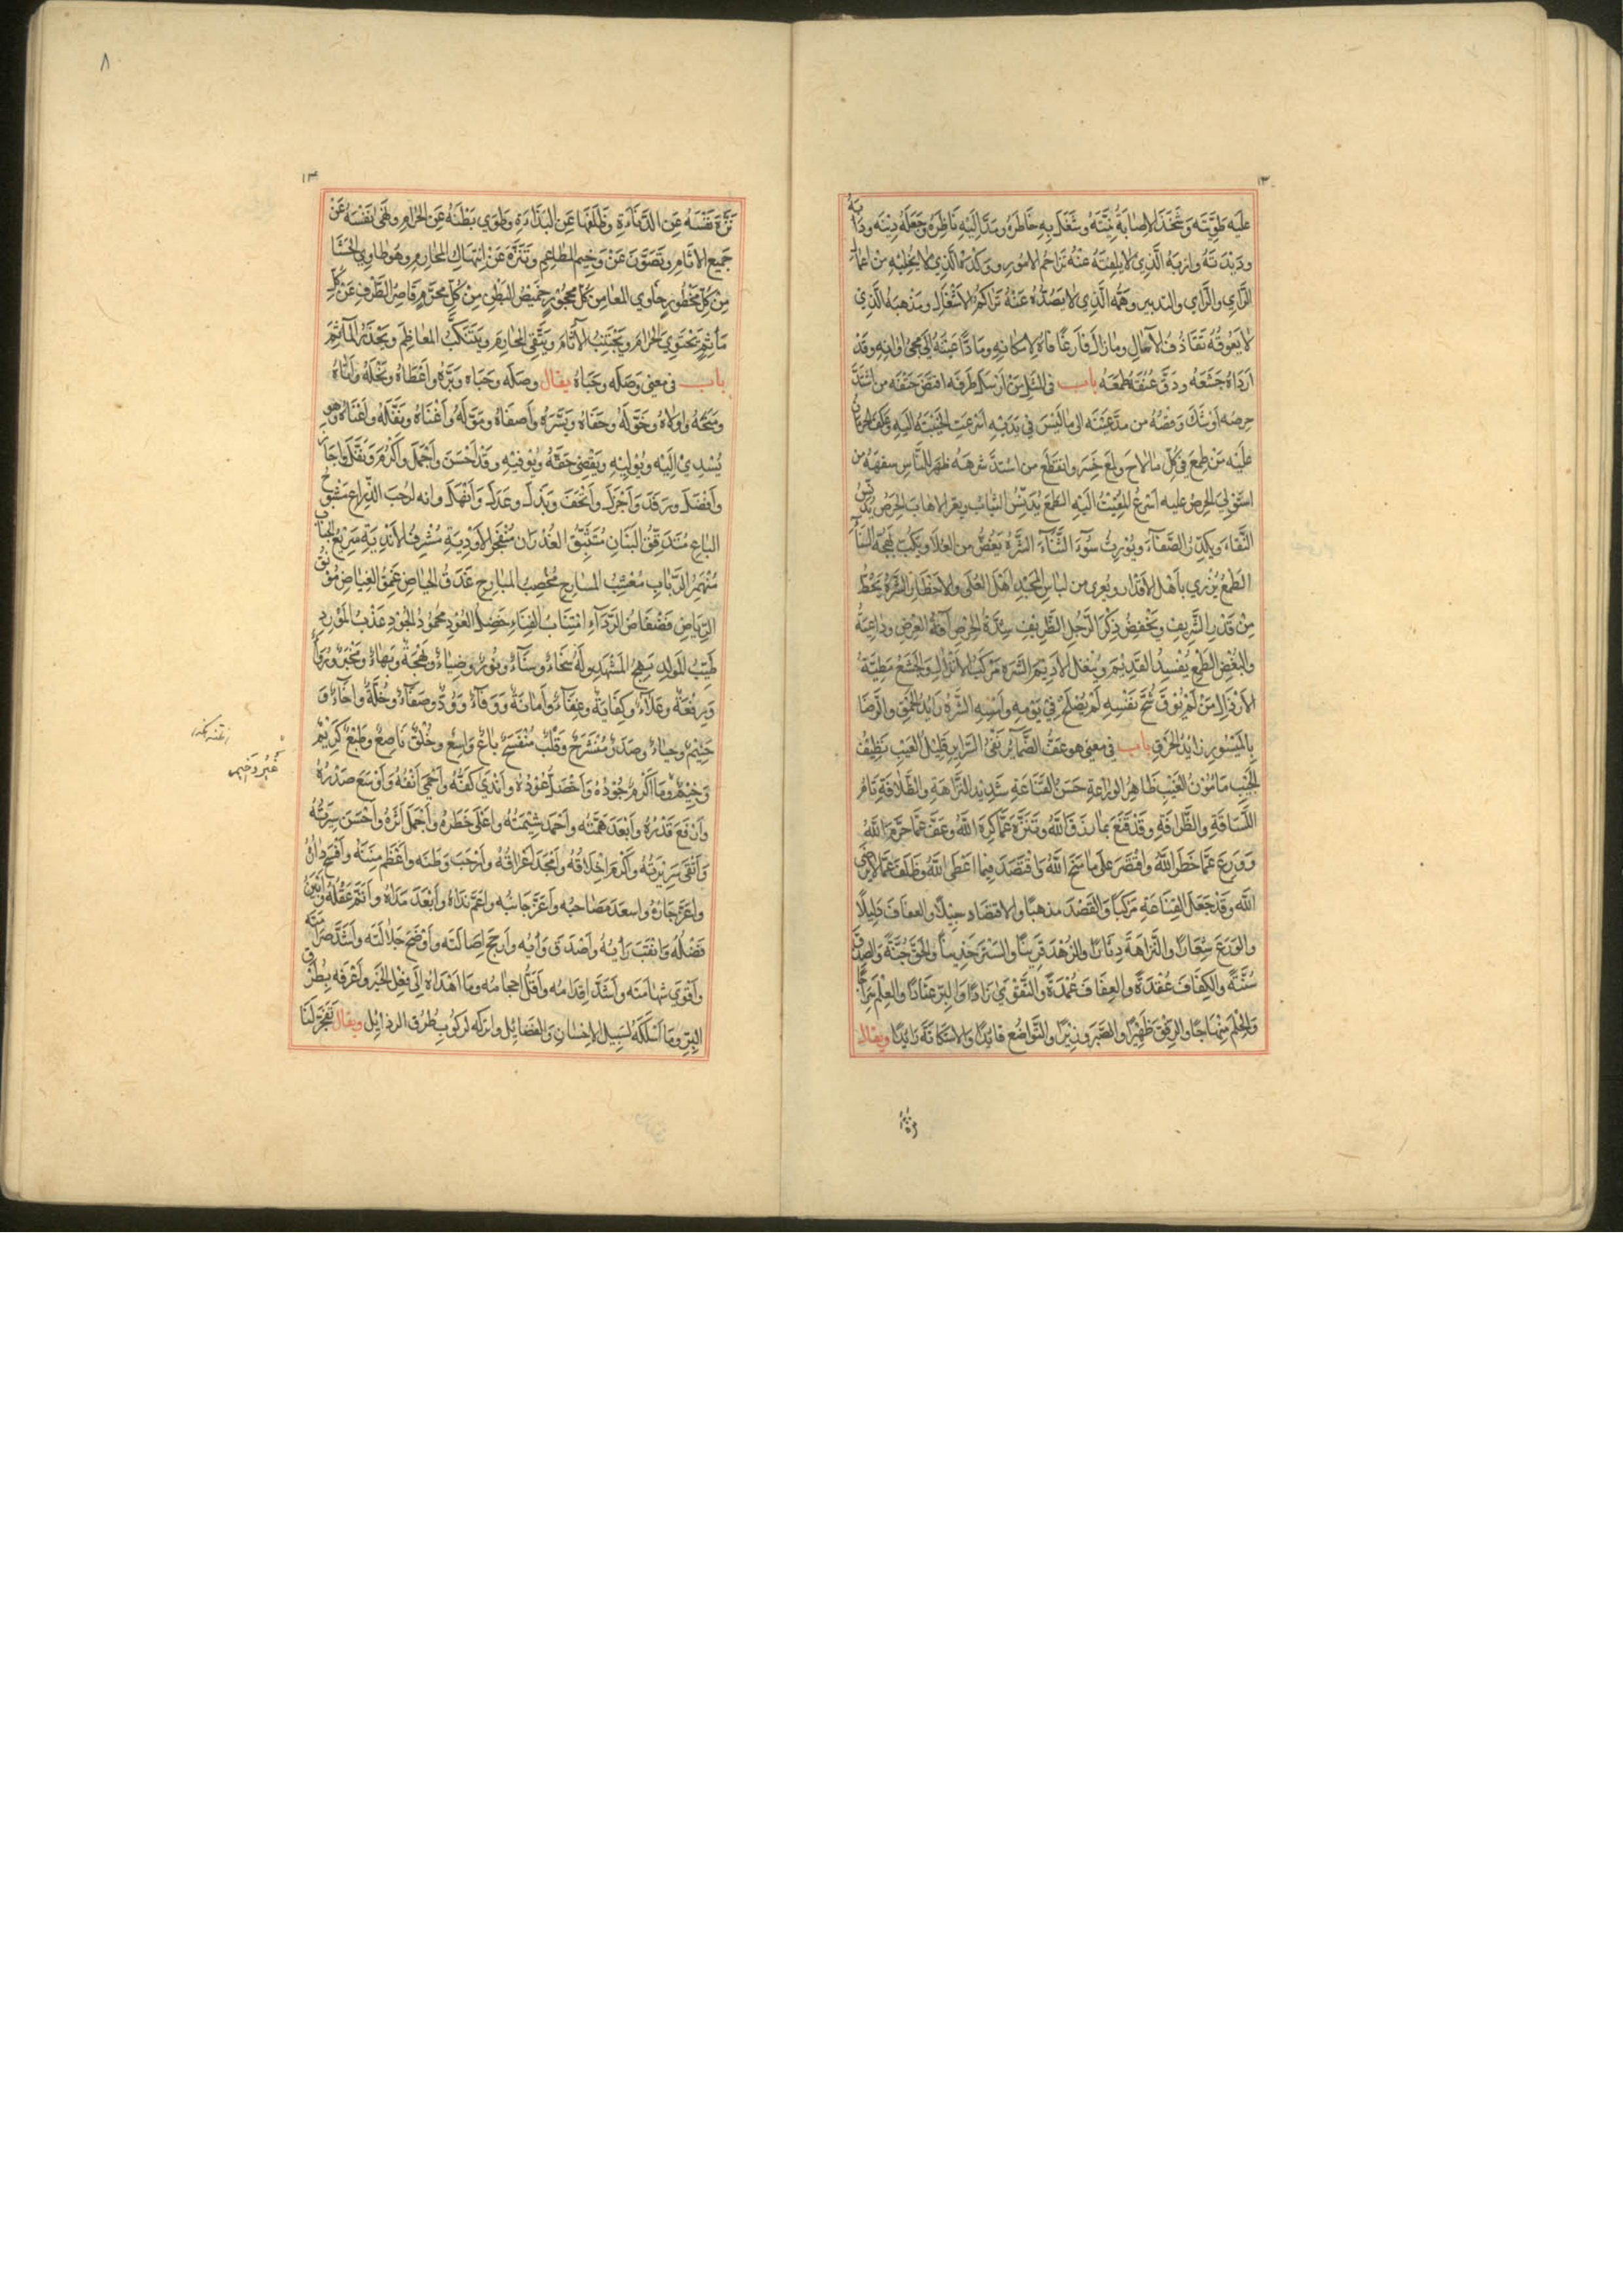 ١٣
عليه طَوِيَّتَه وَشَحَذَ لِاصابَةِ نِيَّتَهُ وشَغَلَ بِهِ خَاطِرَهُ ومَدَّ اِلَيْهِ نَاظِرَهُ وجَعَلَهُ دِيْنَه ودَابَهُ
ودَيْدَنَهُ وارَبَهُ الَّذِي لا يَلْفِتُهُ عَنْهُ تَزَاحُمُ الامُورِ ووَكْدَهُ الَّذِي لا يُخْلِيْهِ مِنْ اعمالِ
الرَّايِ والتدبير وهَمَّه الَّذِي لا يَصُدُّهُ عَنْهُ تَرَاكُمُ الاَشْغَالِ ومَذْهَبَهُ الَّذِي
لا يَعُوقُهُ تَقَاذُفُ الآمَالِ ومازالَ فَارِغًا فاهُ لِامكانِهِ ومَادًّا عَيْنَهُ اِلَى مَجِئِ اوَانِهِ وقَدْ
اَرْدَاهُ جَشَعُه ودَقَّ عُنُقَهُ طَمَعُه باب فى المَثَلِ مَنْ اَرْسَلَ طَرْفَه اقتَضَ حَتْفَه من اشْتَدَّ
حِرصُه اَوْشَكَ وَقْصُهُ من مَدَّ عَيْنَه الى مالَيْسَ فى يَدَيْهِ اَسْرَعَتِ الخَيْبَةُ الَيهِ وعَكَفَ الحِرمانُ
عَلَيْه مَنْ طَمِعَ فى كُلِّ مالاحَ ولَمَعَ خَسِرَ وانقَطَعَ من اشتَدَّ شَرَهُه ظَهَرَ لِلنَّاسِ سفَهُه من
استَوْلَى الحِرصُ عليه اَسْرَعَ المَقْتُ الَيْهِ الطَّمَعُ يُدَنِّسُ الثيابَ ويعر الاهابَ الحِرْصُ يُدَنِّسُ
النَّقَاءَ ويُكَدِّرُ الصَّفَاءَ ويُوْرِثُ سُوْءَ الثَّنَاءِ الشَّرَهُ يَغُضُّ من العُلاَ ويَسْلُبُ بَهْجَةَ السَّنَاءِ
الطَمَعُ يُزْرِي بِاَهْلِ الاَقْدَارِ ويُعرِى من لباسِ المَجْدِ اَهْلَ العُلَى والاَخْطَارِ الشَّرَهُ يَحُطُّ
مِنْ قَدْرِ الشَّرِيفِ ويَخْفِضُ ذِكْرَ الرَّجُلِ الظَّرِيفِ شِدَّةُ الحِرْصِ آفَةُ العِرْضِ وداعِيَةُ
والبُغْضِ الطَّمَعُ يُفْسِدُ القَدِيْمَ ويُنْغِلُ الاَدِيْمَ الشَّرَهُ مَرْكَبُ الاَنْذَالِ والجَشَعُ مَطِيَّةُ
الاَرْذَالِ مَنْ لَمْ يُوْقَ شُحَّ نَفْسِهِ لَمْ يُصْلِحْ فِي يَوْمِهِ واَمْسِهِ الشَّرَهُ رَايِدُ الحُمْقِ والرِّضَا
بِالمَيْسُورِ زَايِدُ الخَرقِ باب فى معنى هو عَفُّ الضَّمايِرِ نَقِىُّ السَّرايِرِ قَلِيْلُ العَيْبِ نَظِيْفُ
الجَيْبِ مَامُوْنُ الغَيْبِ ظَاهِرُ الوَرَاعَةِ حَسَنُ القَنَاعَةِ شَدِيْدُ النَّزَاهَةِ والظَّلافَةِ تَامُّ
اللَّبَاقَةِ والظَّرافَةِ وقَدْ قَنِعَ بما رَزَقَ اللَّهُ وتَنَزَّهَ عَمَّا كَرِهَ اللَّهُ وعَفَّ عَمَّا حَرَّمَ اللَّهُ
وَوَرِعَ عَمَّا حَظَرَ اللَّهُ واقْتَصَرَ عَلى ما مَنَحَ اللَّهُ واقْتَصَدَ فِيما اَعْطَى اللَّهُ وظَلَفَ عَمَّا لا يَرْضَى
اللَّه وقَدْ جَعَلَ القَنَاعَةَ مَرْكَبًا والقَصْدَ مذهبًا والاقتصَادَ خِدْنًا والعفافَ دَلِيلًا
والوَرَعَ شِعَارًا والنَّزاهَةَ دِثَارًا والزُهْدَ قَرِيْنًا والسَّتْرَ خَدِينًا والحَقَّ جُنَّةً والصِدقَ
سُنَّةً والكِفَافَ عُقْدَةً والعِفَافَ عُمْدَةً والتَّقْوَى زَادًا والبِرَّ عَتَادًا والعِلْمَ سِرَاجًا
والحِلْمَ مِنْهَاجًا والرِفْقَ ظَهِيْرًا والصَّبْرَ وَزِيْرًا والتَّوَاضُعَ قايِدًا والاسْتِكَانَةَ رَايِدًا ويقال
٨
١٤
نَزَّهَ نَفْسَهُ عَنِ الدَّنَاءَةِ وظَلَفَهَا عَنِ البَذَاءَةِ وطَوَى بَطْنَهُ عَنِ الحَرَامِ ونَهَى نَفْسَهُ عَنْ
جَمِيعِ الاَثَامِ وتَصَوَّنَ عَنْ وَخِيمِ المَطَاعِمِ وتَنَزَّهَ عَنْ اِنْتِهَاكِ المَحَارِمِ وهُوَ طاوِي الحَشَا
مِنْ كُلِّ مَحْظُورٍ خَاوِي المَعَا مِنْ كُلِّ مَحْجُوْرٍ خَمِيْصُ البَطْنِ مِنْ كُلِّ مُحَرَّمٍ قَاصِرُ الطَّرْفِ عَنْ كُلِّ
مَأثَمٍ يَجْتَوِي الحَرَامَ ويَجْتَنِبُ الآثَامَ ويَتَّقِى المَحَارِمَ ويَتَنَكَّبُ المَعَاظِمَ ويَحْذَرُ المَآثِمَ
باب فى معنى وَصَلَه وحَبَاهُ يقال وصَلَه وحَبَاه وبَرَّهُ واَعْطَاهُ ونَحَلَهُ واَتَاهُ
ومَنَحَهُ واولاهُ وخَوَّلَهُ وحَفَاهُ ويَسَّرَهُ واَصفَاهُ ومَوَّلَهُ واَغْنَاهُ ونَفَّلَهُ واَقنَاهُ وهو
يُسْدِيْ اِلَيْه ويُوْلِيْهِ ويَقْضِى حَقَّهُ ويُوَفِّيْهِ وقَدْ اَحْسَنَ واَجْمَلَ واَكْرَمَ ونَفَّلَ وجَادَ
واَفْضَلَ ورَفَدَ واَجْزَلَ واَتْحَفَ وبَذَلَ وعَدَلَ واَنْهَلَ وانه لَرَحْبُ الذِّرَاعِ مَبْسُوطُ
الباعِ مُتَدَفِّقُ البَنَانِ مُتَثَبِّقُ الغُدْرَانِ مُنْفَجِرُ الاَوْدِيَةِ مُشْرِفُ الاَنْدِيَةِ مَرِيْعُ الجَنَابِ
مُنْهَمِرُ الرَّبَابِ مُعْشِبُ المَسَارِحِ مُخْصِبُ المَبَارِحِ غَدَقُ الحِيَاضِ عَمِقُ الغِيَاضِ مُوْنِقُ
الرِّيَاضِ فَضْفَاضُ الرِّدَاءِ مُنْتَابُ الفِنَاءِ خَضِلُ العُوْدِ مَحْمُوْدُ الجُوْدِ عَذْبُ المَوْرِدِ
طَيِّبُ المَوْلِدِ بَهِجُ المَشْهَدِ وله سَخَاءٌ وسَنَاءٌ ونُورٌ وضِيَاءٌ وبَهْجَةٌ وبَهَاءٌ ومَخْبَرٌ ورُوَاءٌ
ورِفْعَةٌ وعَلَاءٌ وكِفَايَةٌ وغِنَاءٌ واَمَانَةٌ ووَفَاءٌ ووُدٌّ وصَفَاءٌ وخُلَّةٌ واِخَاءٌ و
خِيْمٌ وحياءٌ وصَدَرٌ مُنْشَرِحٌ وقَلْبٌ مُنْفَسِحٌ باعٌ واسِعٌ وخُلُقٌ نَاصِعٌ وطَبْعٌ كَرِيْمٌ
وخِيْمٌ ومَا اَكْرَمَ جُوْدُهُ واَخْضَلَ عُوْدُهُ واَنْدَى كَفَّهُ واَحْمَى اَنْفَهُ واَوْسَعَ صَدْرَهُ
واَرْفَعَ قَدْرَهُ واَبْعَدَ هِمَّتَه واَحْمَدَ شِيْمَتَهُ واعْلَى خَطَرَهُ واَجْمَلَ اَثَرَهُ واَحْسَنَ سِيْرَتَهُ
واَنْقَى سَرِيْرَتَهُ واَكْرَمَ اَخْلَاقَهُ واَمْجَدَ اَعْرَاقَهُ واَرْحَبَ وَطَنَه واَعْظَمَ مِنَنَهُ واَفْسَحَ دَارَهُ
واَعَزَّ جَارَهُ واسعَدَ مَصَاحبَه واَعَزَّ جَانِبَه واعَمَّ نَدَاهُ واَبْعَدَ مَدَاهُ واَتَمَّ عَقْلَهُ واَبْيَنَ
فَضْلَهُ واَثْقَبَ رَايَهُ واَصْدَقَ وَأيَه واَرجَحَ اِصَالَتَه واَوْضَحَ جَلالَتَه واَشَدَّ صَرَامَتَه
واَقْوَى شَهامَتَه واَشَدَّ اِقدَامَه واَقَلَّ احجامَه ومَا اَهْدَاهُ اِلَى فِعْلِ الخَيْرِ واَعْرَفَه بِطُرُقِ
البِرِّ ومَا اَسْلَكَهُ لسَبِيلِ الاِحْسَانِ والفَضَائِلِ واترَكه لِرُكُوبِ طُرُقِ الرذَايِلِ ويقال تَفَجَّرَ لَنَا